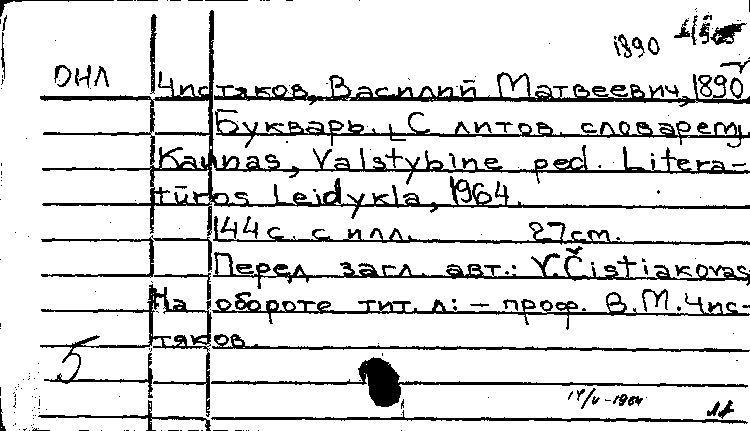 1890
ОНЛ Чистяков, Василий Матвеевич, 1890
Букварь. [С литов. словарем]
Kaunas, Valstybine ped. Litera-
tūros Leidykla, 1964.
144 с. с илл. 27cm.
Перед загл. авт.: V. Čistiakovas
На обороте тит. л: - проф. В.М. Чис-
тяков.
5
14/V-1964